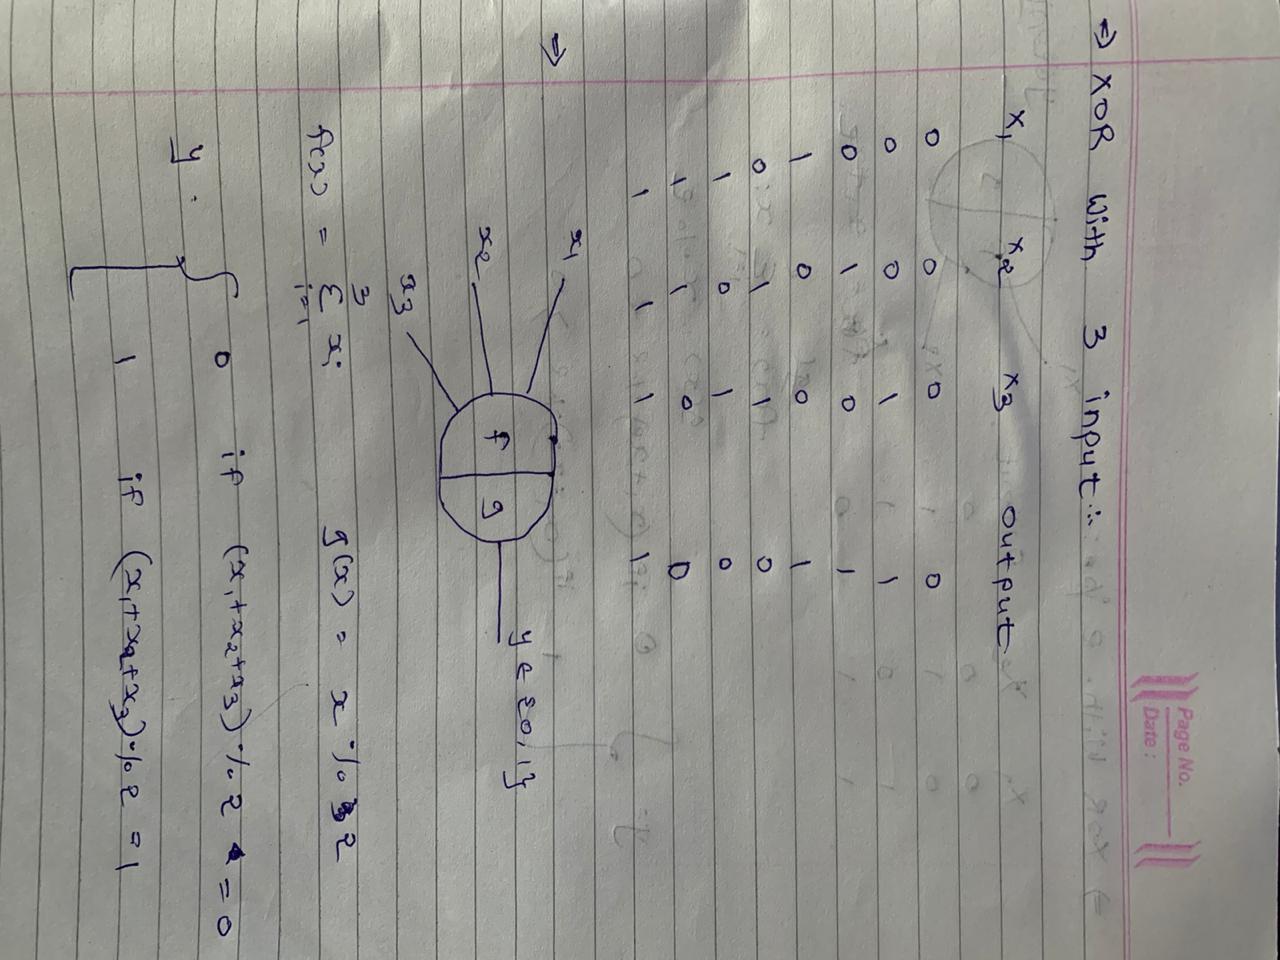 Page No.
Date :
=> XOR With 3 input :-
x1 x2 x3 output
0 0 0 0
0 0 1 1
0 1 0 1
1 0 0 1
0 1 1 0
1 0 1 0
1 1 0 0
1 1 1 1
=> x1
x2 f g y ∈ {0, 1}
x3
f(x) = 3 Σ i=1 xi g(x) = x % 2
y = { 0 if (x1+x2+x3) % 2 = 0
1 if (x1+x2+x3) % 2 = 1